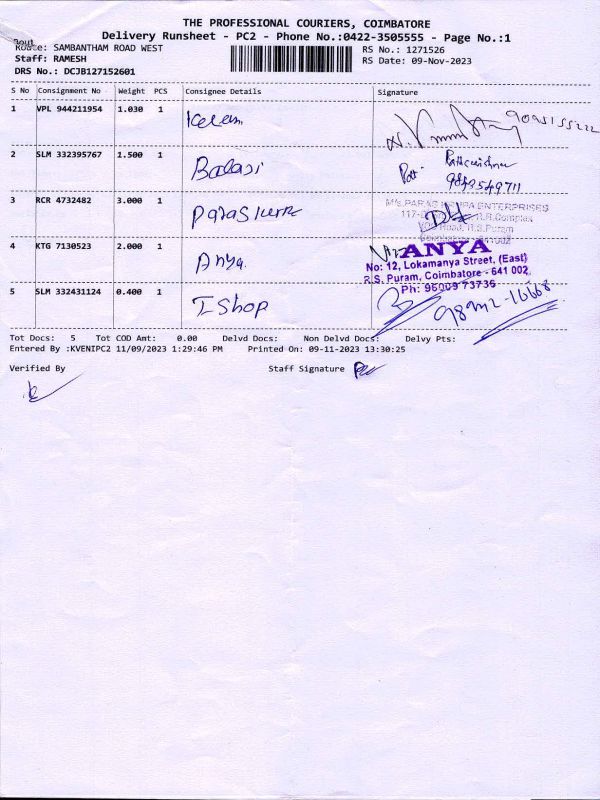 THE PROFESSIONAL COURIERS, COIMBATORE
Delivery Runsheet - PC2 - Phone No.:0422-3505555 - Page No.:1
Route: SAMBANTHAM ROAD WEST
RS No.: 1271526
Staff: RAMESH
RS Date: 09-Nov-2023
DRS No.: DCJB127152601
S No Consignment No Weight PCS Consignee Details Signature
1 VPL 944211954 1.030 1
2 SLM 332395767 1.500 1 Balaji
3 RCR 4732482 3.000 1 Paras
4 KTG 7130523 2.000 1 Anya.
ANYA
No: 12, Lokamanya Street, (East)
R.S. Puram, Coimbatore - 641 002.
Ph: 96009 73736
5 SLM 332431124 0.400 1 I Shop
Tot Docs: 5 Tot COD Amt: 0.00 Delvd Docs: Non Delvd Docs: Delvy Pts:
Entered By :KVENIPC2 11/09/2023 1:29:46 PM Printed On: 09-11-2023 13:30:25
Verified By Staff Signature